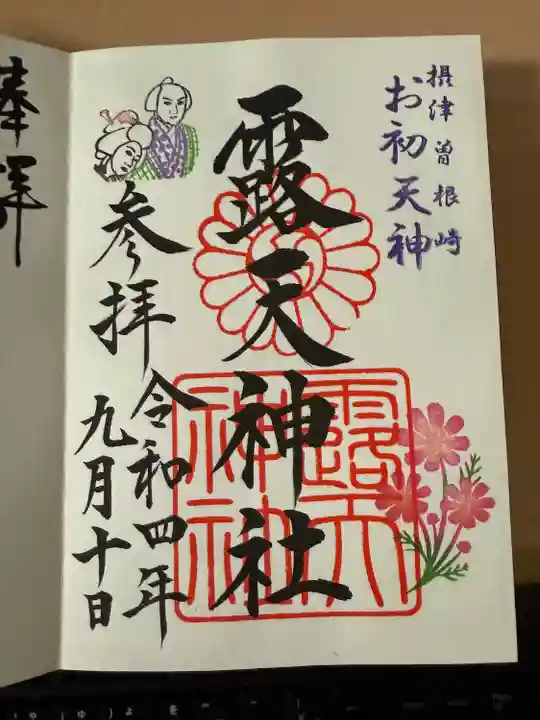 摂津曽根崎
お初天神
露天神社
露天
神社
参拝
令和四年
九月十日
奉拝